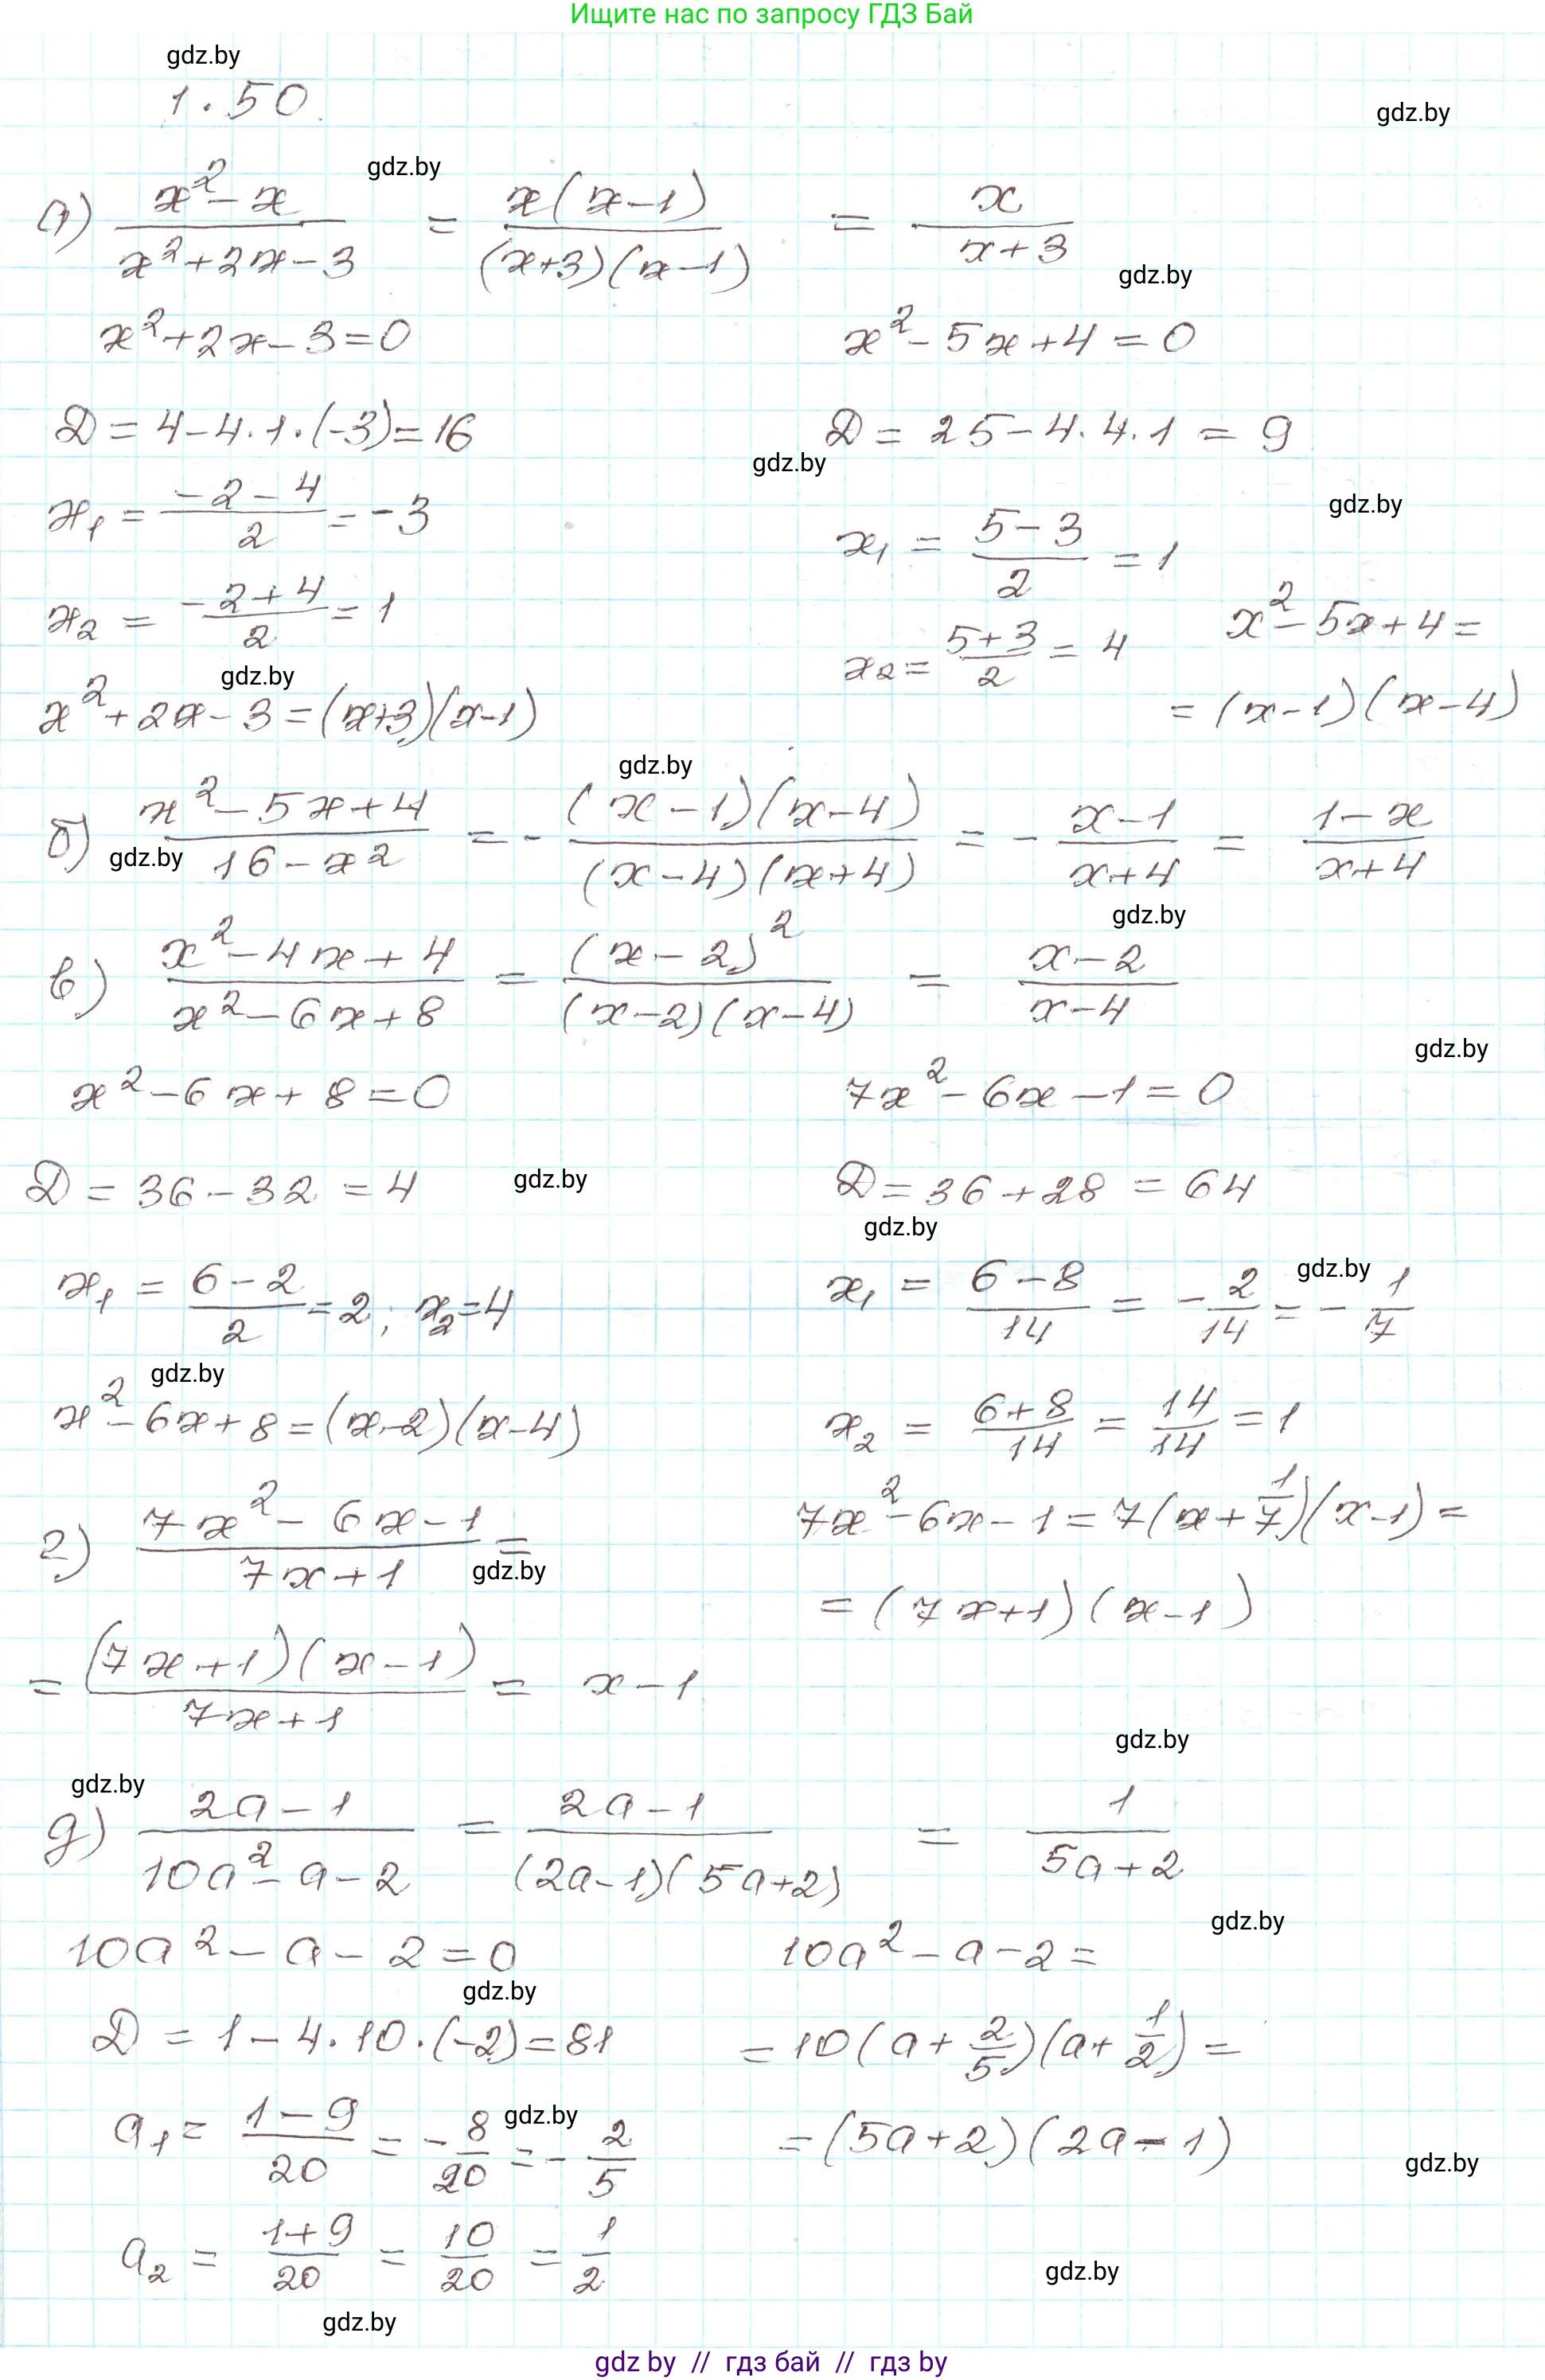 Ищите нас по запросу ГДЗ Бай
gdz.by
1.50
gdz.by
gdz.by
а) (x² - x)/(x² + 2x - 3) = x(x-1)/((x+3)(x-1)) = x/(x+3)
gdz.by
x² + 2x - 3 = 0
D = 4 - 4·1·(-3) = 16
x₁ = (-2-4)/2 = -3
x₂ = (-2+4)/2 = 1
gdz.by
x² + 2x - 3 = (x+3)(x-1)
x² - 5x + 4 = 0
D = 25 - 4·4·1 = 9
gdz.by
gdz.by
x₁ = (5-3)/2 = 1
x₂ = (5+3)/2 = 4
x² - 5x + 4 =
= (x-1)(x-4)
gdz.by
б) (x² - 5x + 4)/(16 - x²) = - (x-1)(x-4)/((x-4)(x+4)) = - (x-1)/(x+4) = (1-x)/(x+4)
gdz.by
gdz.by
в) (x² - 4x + 4)/(x² - 6x + 8) = (x-2)²/((x-2)(x-4)) = (x-2)/(x-4)
gdz.by
x² - 6x + 8 = 0
D = 36 - 32 = 4
gdz.by
x₁ = (6-2)/2 = 2; x₂ = 4
gdz.by
x² - 6x + 8 = (x-2)(x-4)
7x² - 6x - 1 = 0
D = 36 + 28 = 64
gdz.by
gdz.by
x₁ = (6-8)/14 = - 2/14 = - 1/7
x₂ = (6+8)/14 = 14/14 = 1
7x² - 6x - 1 = 7(x + 1/7)(x-1) =
= (7x+1)(x-1)
г) (7x² - 6x - 1)/(7x+1) =
gdz.by
= (7x+1)(x-1)/(7x+1) = x-1
gdz.by
gdz.by
д) (2a-1)/(10a² - a - 2) = (2a-1)/((2a-1)(5a+2)) = 1/(5a+2)
gdz.by
10a² - a - 2 = 0
gdz.by
D = 1 - 4·10·(-2) = 81
a₁ = (1-9)/20 = - 8/20 = - 2/5
gdz.by
a₂ = (1+9)/20 = 10/20 = 1/2
10a² - a - 2 =
= 10(a + 2/5)(a + 1/2) =
= (5a+2)(2a-1)
gdz.by
gdz.by
gdz.by
gdz by // гдз бай // гдз by